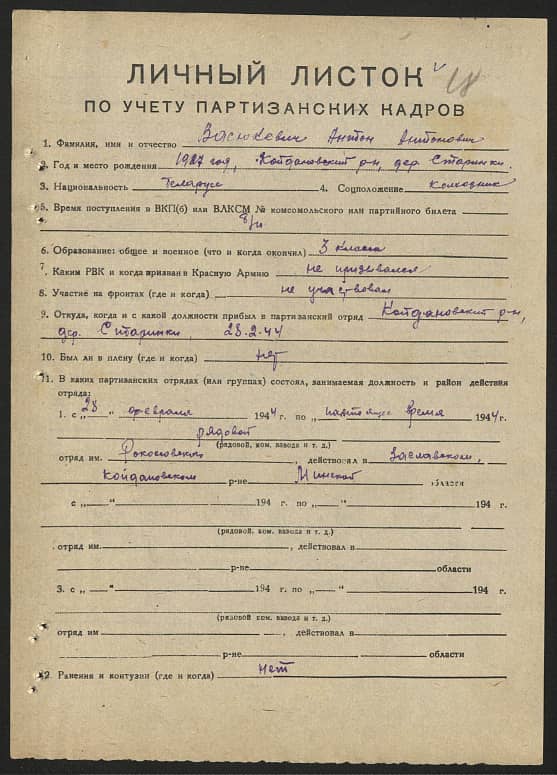 18
ЛИЧНЫЙ ЛИСТОК
ПО УЧЕТУ ПАРТИЗАНСКИХ КАДРОВ
1. Фамилия, имя и отчество Васюкевич Антон Антонович
2. Год и место рождения 1927 год, Койдановский р-н, дер. Старинки.
3. Национальность Беларус 4. Соцположение Колхозник
5. Время поступления в ВКП(б) или ВЛКСМ № комсомольского или партийного билета
б/п
6. Образование: общее и военное (что и когда окончил) 3 класса
7. Каким РВК и когда призван в Красную Армию не призывался
8. Участие на фронтах (где и когда) не участвовал
9. Откуда, когда и с какой должности прибыл в партизанский отряд Койдановский р-н,
дер. Старинки, 28.2.44
10. Был ли в плену (где и когда) нет
11. В каких партизанских отрядах (или группах) состоял, занимаемая должность и район действия
отряда:
1. с „28“ февраля 1944 г. по „настоящее время 1944 г.
рядовой
(рядовой, ком. взвода и т. д.)
отряд им. Рокосовского, действовал в Заславском,
Койдановском р-не Минской области
с „ “ 194 г. по „ “ 194 г.
(рядовой, ком. взвода и т. д.)
отряд им. , действовал в
р-не области
3. с „ “ 194 г. по „ “ 194 г.
(рядовой ком. взвода и т. д.)
отряд им , действовал в
р-не области
12. Ранения и контузии (где и когда) нет